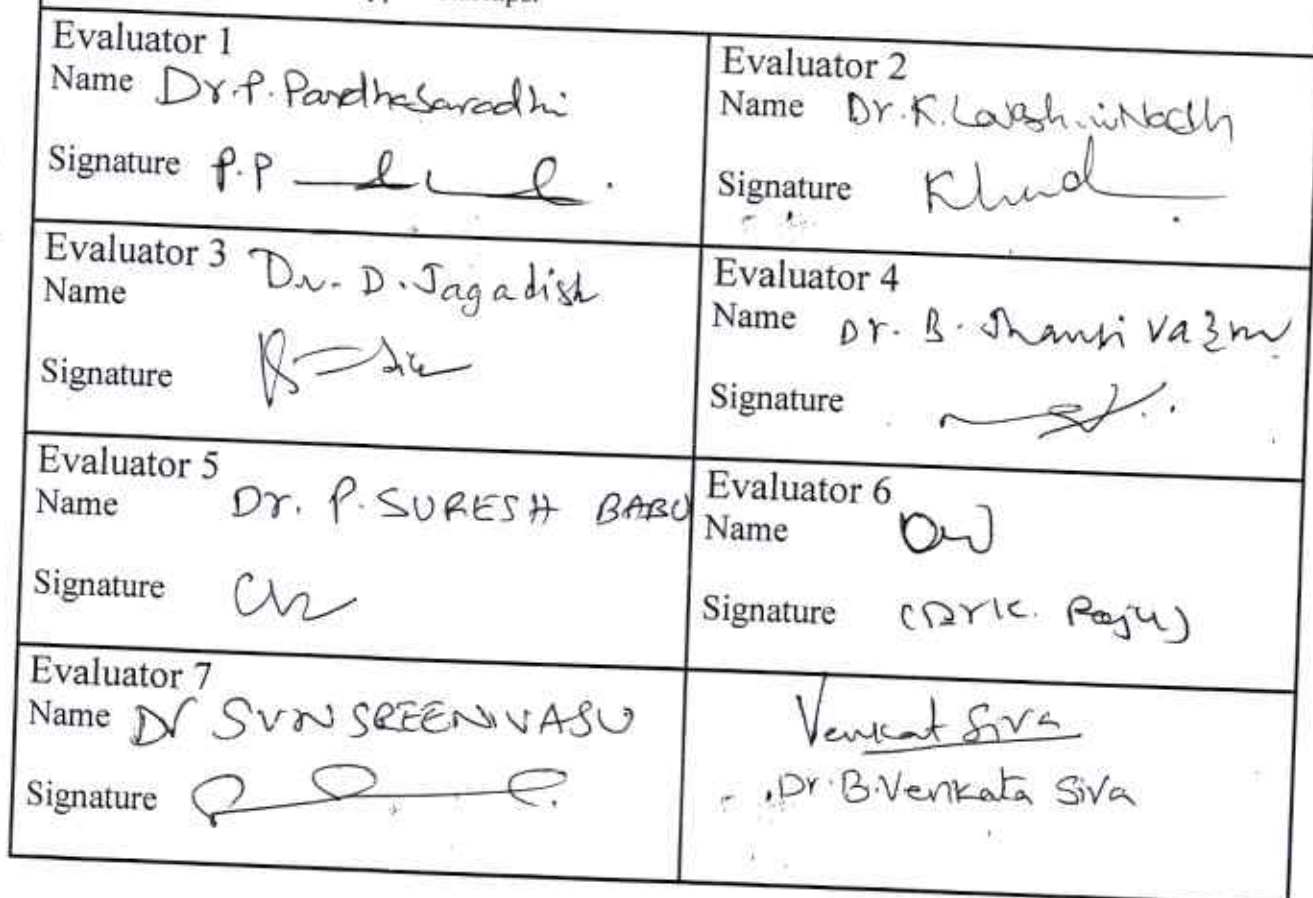 Evaluator 1
Name Dr. P. Pardhasaradhi
Signature P.P
Evaluator 2
Name Dr. K. Lakshmi
Signature
Evaluator 3
Name Dr. D. Jagadish
Signature
Evaluator 4
Name Dr. B. Jhansi
Signature
Evaluator 5
Name Dr. P. SURESH BABU
Signature
Evaluator 6
Name
Signature (Dr K. Raju)
Evaluator 7
Name Dr SVN SREENIVASU
Signature
Venkat Siva
Dr. B. Venkata Siva